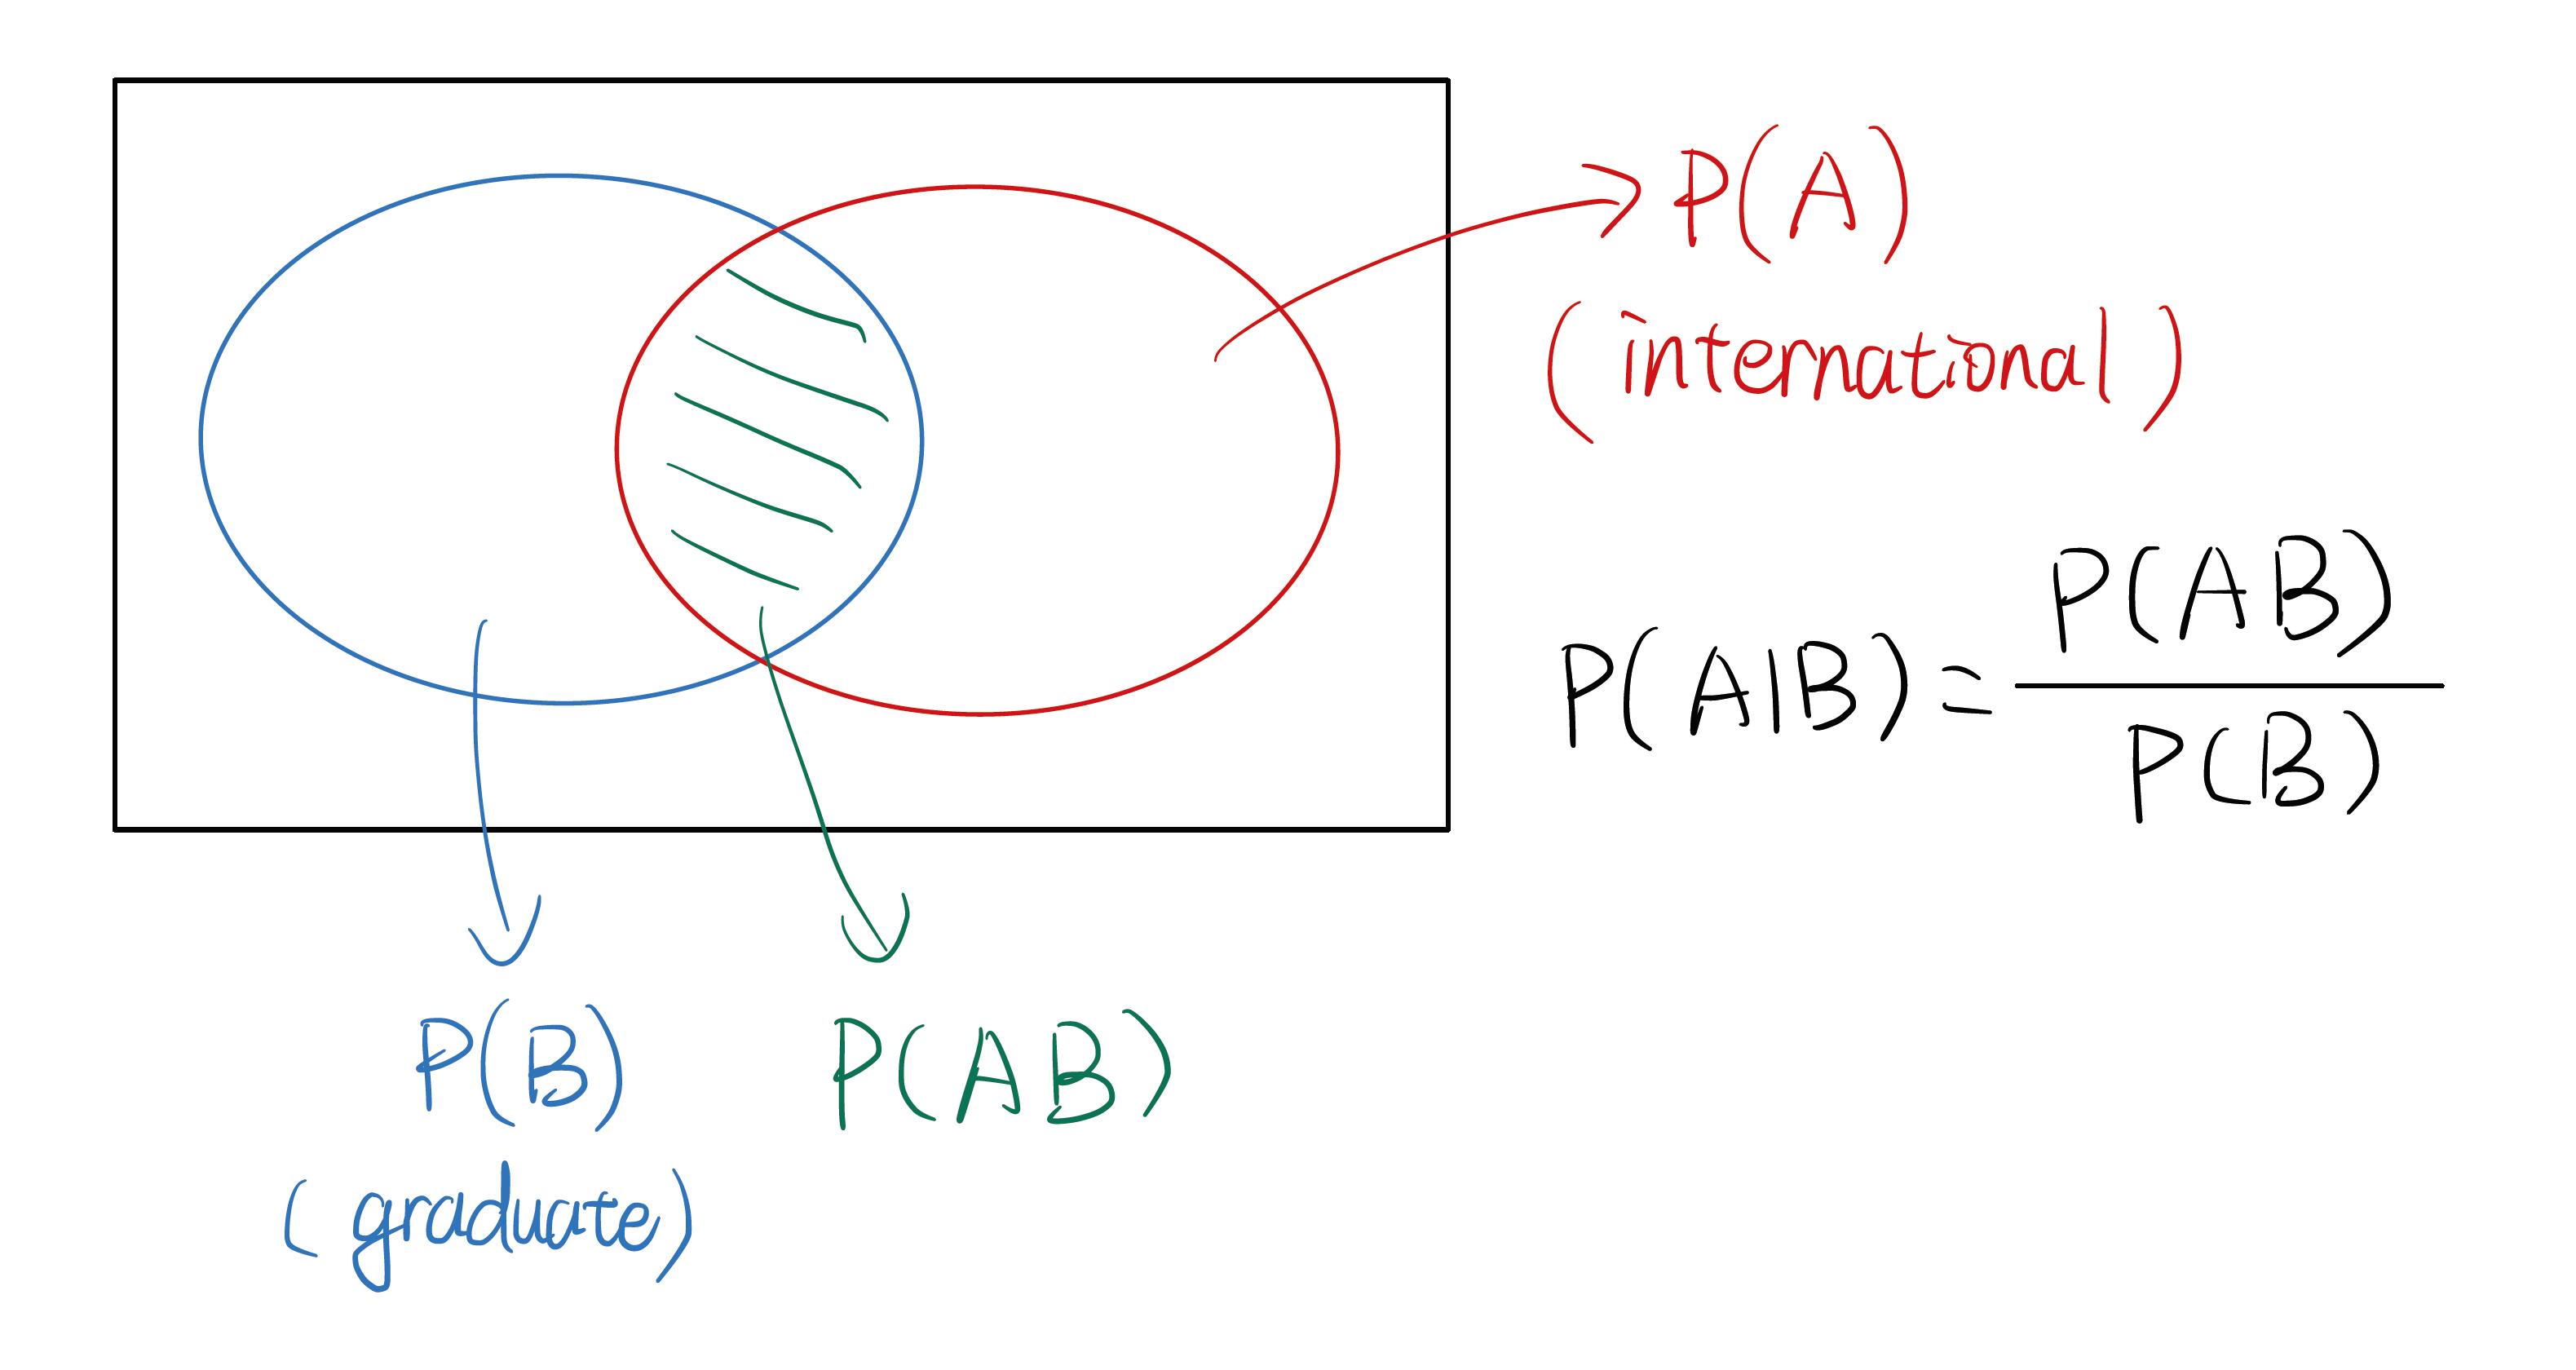 P(A)
(international)
P(A|B) = P(AB) / P(B)
P(B)
(graduate)
P(AB)